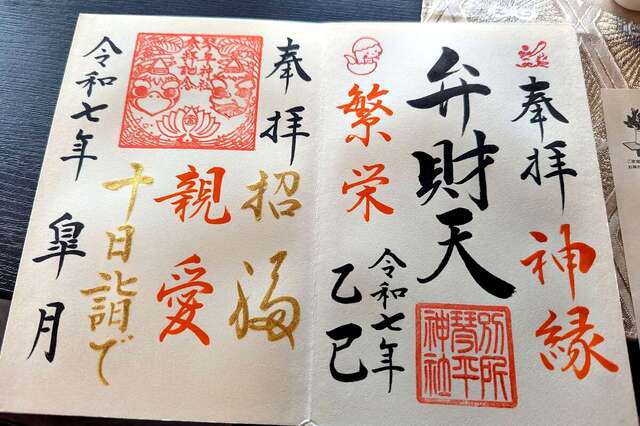 奉拝
神縁
弁財天
別所
琴平
神社
繁栄
令和七年
乙巳
奉拝
招福
親愛
十日詣で
令和七年
皐月